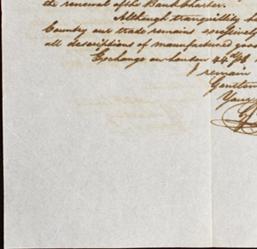 the renewal of the Bank Charter.
Although tranquillity
Country our trade remains
all descriptions of manufactured goo
Exchange on London
I remain
Gentlem
Your